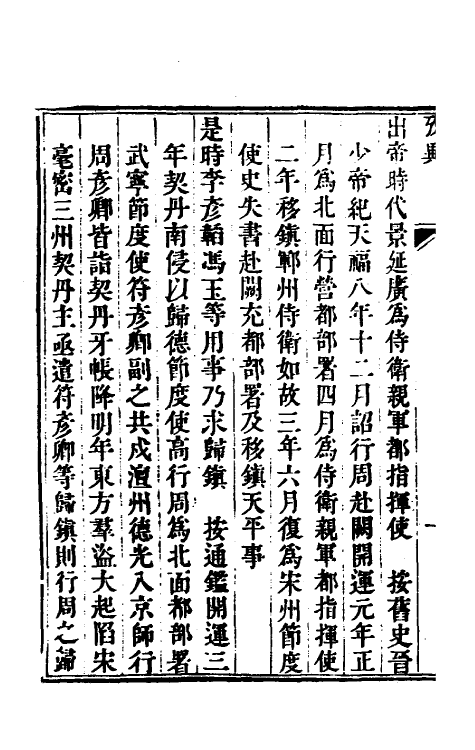 出帝時代景延廣爲侍衛親軍都指揮使　按舊史晉
少帝紀天福八年十二月詔行周赴闕開運元年正
月爲北面行營都部署四月爲侍衛親軍都指揮使
二年移鎮鄆州侍衛如故三年六月復爲宋州節度
使史失書赴闕充都部署及移鎮天平事
是時李彥韜馮玉等用事乃求歸鎮　按通鑑開運三
年契丹南侵以歸德節度使高行周爲北面都部署
武寧節度使符彥卿副之共戍澶州德光入京師行
周彥卿皆詣契丹牙帳降明年東方羣盜大起陷宋
亳密三州契丹主亟遣符彥卿等歸鎮則行周之歸